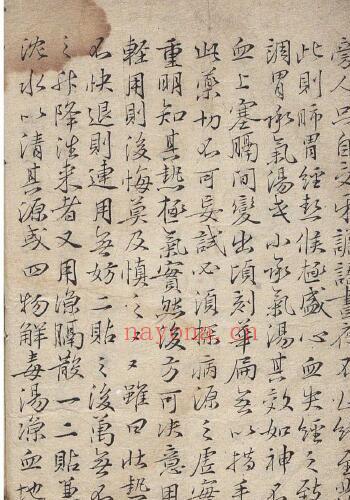 旁人只自讝語晝夜不
此則肺胃經熱候極盛心血失經之致
調胃承氣湯或小承氣湯其效如神不
血上塞膈間變出頃刻華扁無以措手
此藥切不可妄試必須病源之虛
重明知其熱極氣實然後方可决意用
輕用則後悔莫及慎之〻〻雖曰壯熱
不快退則連用無妨二貼之後萬無不
之升降往來者又用涼隔散一二貼兼
沈水以清其源或四物解毒湯涼血地
nayona.cn